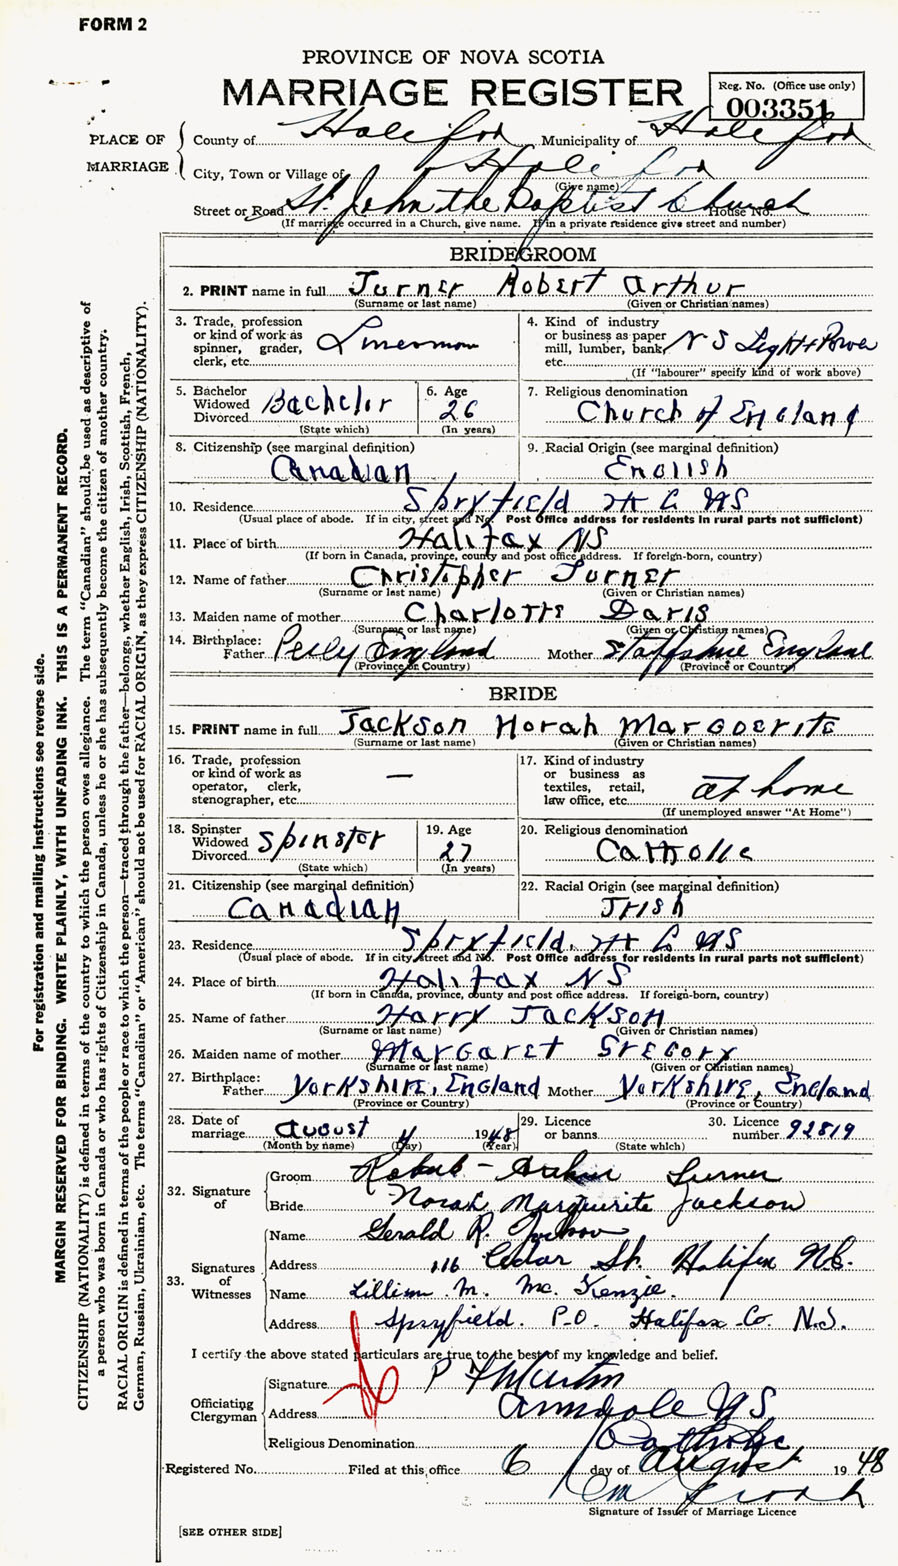 FORM 2
PROVINCE OF NOVA SCOTIA
MARRIAGE REGISTER
Reg. No. (Office use only)
003351
PLACE OF MARRIAGE
County of Halifax Municipality of Halifax
City, Town or Village of Halifax
(Give name)
Street or Road St. John the Baptist Church House No.
(If marriage occurred in a Church, give name. If in a private residence give street and number)
BRIDEGROOM
2. PRINT name in full Turner Robert Arthur
(Surname or last name) (Given or Christian names)
3. Trade, profession
or kind of work as
spinner, grader,
clerk, etc. Lineman
4. Kind of industry
or business as paper
mill, lumber, bank,
etc. N S Light & Power
(If "labourer" specify kind of work above)
5. Bachelor
Widowed
Divorced Bachelor
(State which)
6. Age
26
(In years)
7. Religious denomination
Church of England
8. Citizenship (see marginal definition)
Canadian
9. Racial Origin (see marginal definition)
English
10. Residence Spryfield Hx Co NS
(Usual place of abode. If in city, street and No. Post Office address for residents in rural parts not sufficient)
11. Place of birth Halifax NS
(If born in Canada, province, county and post office address. If foreign-born, country)
12. Name of father Christopher Turner
(Surname or last name) (Given or Christian names)
13. Maiden name of mother Charlotte
(Surname or last name) (Given or Christian names)
14. Birthplace:
Father England Mother Staffshire England
(Province or Country) (Province or Country)
BRIDE
15. PRINT name in full Jackson Norah Marguerite
(Surname or last name) (Given or Christian names)
16. Trade, profession
or kind of work as
operator, clerk,
stenographer, etc. —
17. Kind of industry
or business as
textiles, retail,
law office, etc. at home
(If unemployed answer "At Home")
18. Spinster
Widowed
Divorced Spinster
(State which)
19. Age
27
(In years)
20. Religious denomination
Catholic
21. Citizenship (see marginal definition)
Canadian
22. Racial Origin (see marginal definition)
Irish
23. Residence Spryfield, Hx Co NS
(Usual place of abode. If in city, street and No. Post Office address for residents in rural parts not sufficient)
24. Place of birth Halifax NS
(If born in Canada, province, county and post office address. If foreign-born, country)
25. Name of father Harry Jackson
(Surname or last name) (Given or Christian names)
26. Maiden name of mother Margaret Gregory
(Surname or last name) (Given or Christian names)
27. Birthplace:
Father Yorkshire, England Mother Yorkshire, England
(Province or Country) (Province or Country)
28. Date of
marriage August 4 1948
(Month by name) (Day) (Year)
29. Licence
or banns
(State which)
30. Licence
number 92819
32. Signature of
Groom Robert Arthur Turner
Bride Norah Marguerite Jackson
33. Signatures of Witnesses
Name Gerald R. Jackson
Address 116 Cedar St. Halifax N.S.
Name Lillian M. McKenzie.
Address Spryfield. P.O. Halifax Co. N.S.
I certify the above stated particulars are true to the best of my knowledge and belief.
Officiating Clergyman
Signature P F Martin
Address Armdale NS
Religious Denomination Catholic
Registered No. Filed at this office 6 day of August 1948
Signature of Issuer of Marriage Licence
[SEE OTHER SIDE]
For registration and mailing instructions see reverse side.
MARGIN RESERVED FOR BINDING. WRITE PLAINLY, WITH UNFADING INK. THIS IS A PERMANENT RECORD.
CITIZENSHIP (NATIONALITY) is defined in terms of the country to which the person owes allegiance. The term "Canadian" should be used as descriptive of
a person who was born in Canada or who has rights of Citizenship in Canada, unless he or she has subsequently become the citizen of another country.
RACIAL ORIGIN is defined in terms of the people or race to which the person—traced through the father—belongs, whether English, Irish, Scottish, French,
German, Russian, Ukrainian, etc. The terms "Canadian" or "American" should not be used for RACIAL ORIGIN, as they express CITIZENSHIP (NATIONALITY).